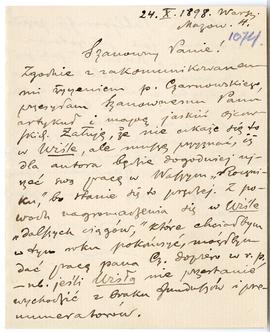 24. X. 1898. Warsz.
Mazow. 4.
1074
Szanowny Panie!
Zgodnie z zakomunikowanem
mi życzeniem p. Czarnowskiego,
przesyłam Szanownemu Panu
artykuł i mapę jaskiń Ojcow
skich. Żałuję, że nie ukaże się to
w Wiśle, ale muszę przyznać, iż
dla autora będzie dogodniej uj-
rzeć swą pracę w Waszym
bo stanie się to prędzej. Z po-
wodu nagromadzenia się w Wiśle
"dalszych ciągów," które chciałbym
w tym roku pokończyć, mógłbym
dać pracę pana Cz. dopiero w r. p.
- nb. jeśli Wisła nie przestanie
wychodzić z braku funduszów i pre
numeratorów.